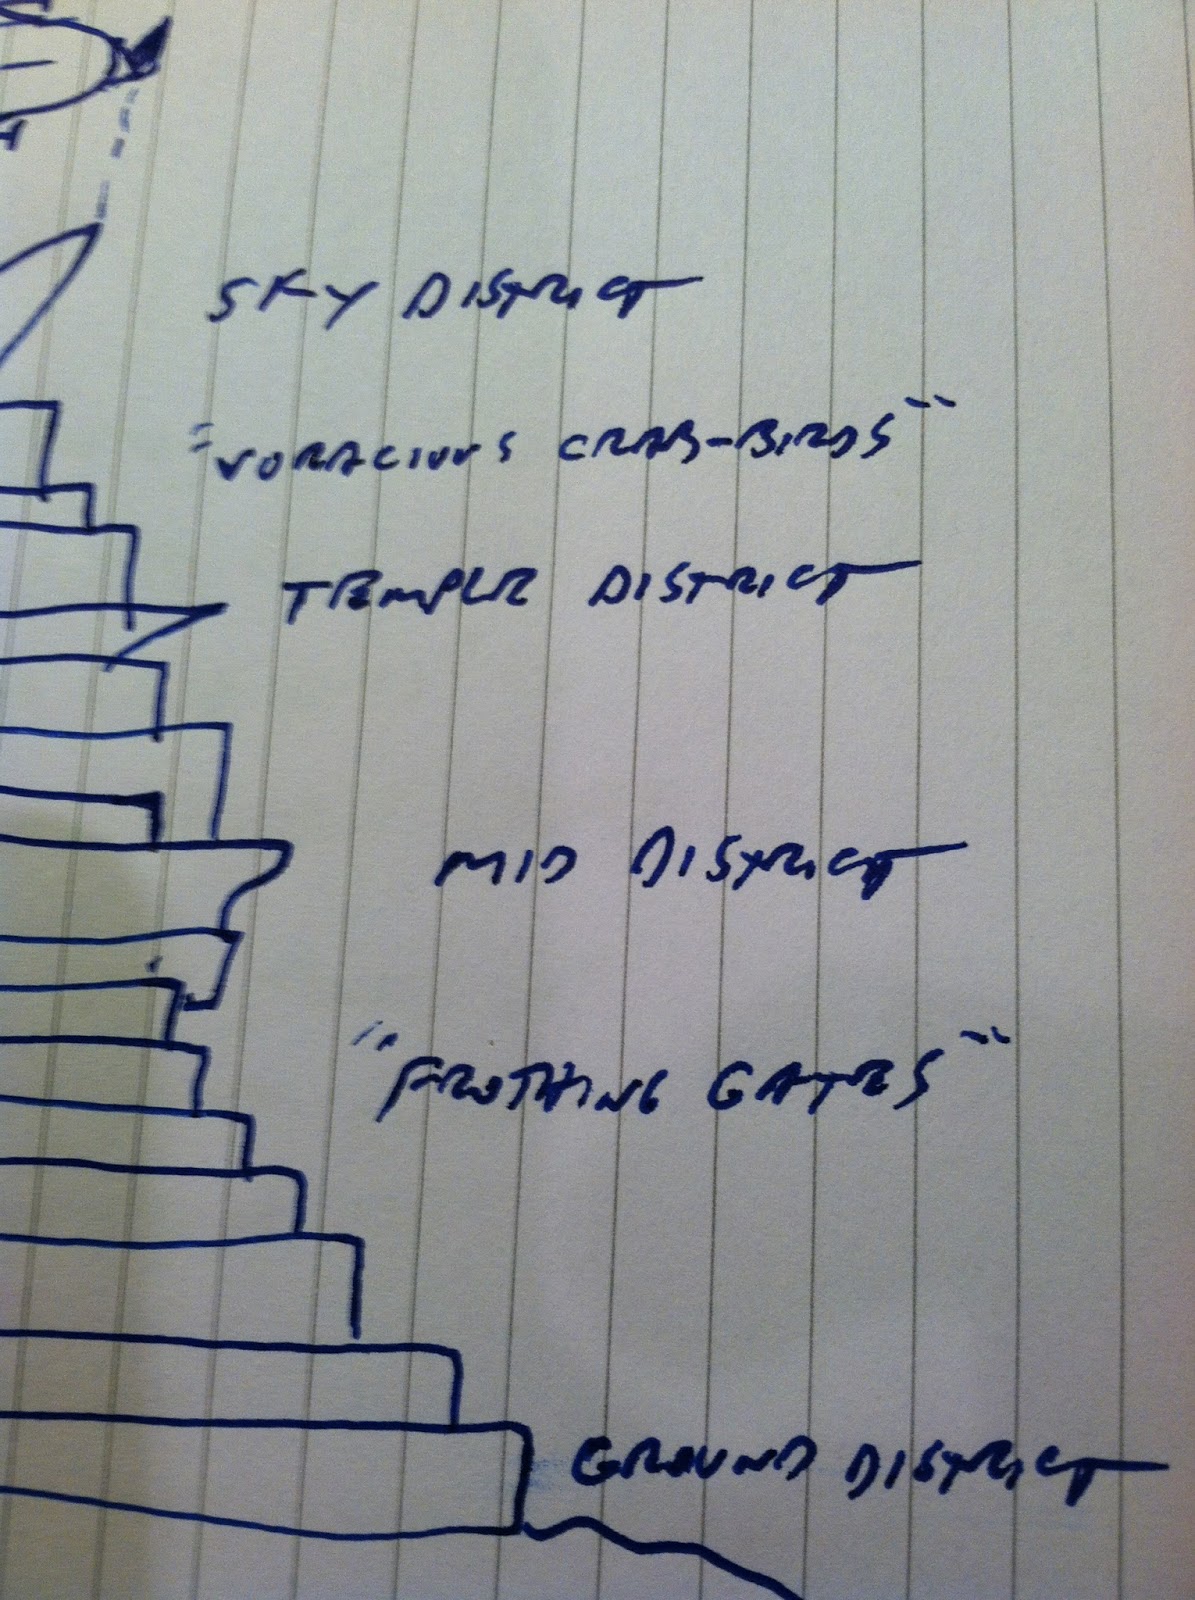 SKY DISTRICT
"VORACIOUS CRAB-BIRDS"
TEMPLE DISTRICT
MID DISTRICT
"FROTHING GATES"
GROUND DISTRICT